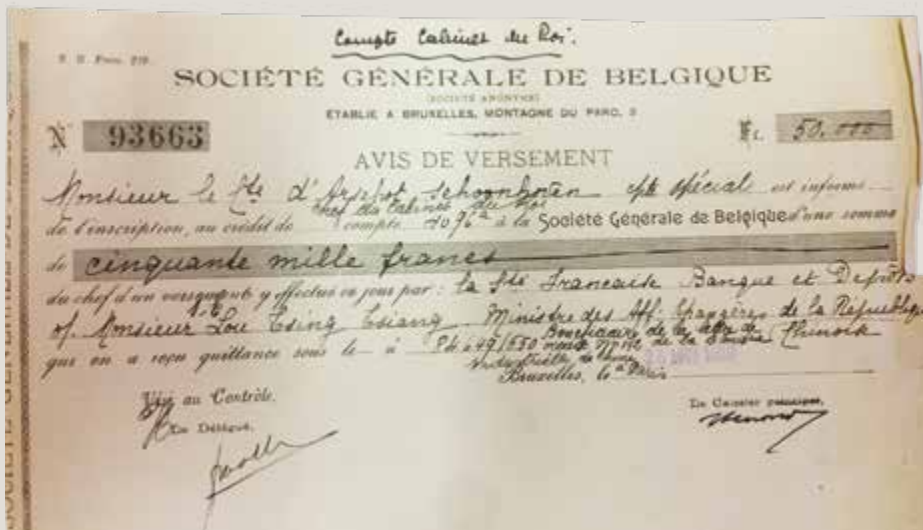 Compte Cabinet du Roi.
SOCIÉTÉ GÉNÉRALE DE BELGIQUE
(SOCIÉTÉ ANONYME)
ÉTABLIE A BRUXELLES, MONTAGNE DU PARC, 3
N 93663
Fr. 50.000
AVIS DE VERSEMENT
Monsieur le Cte d'Arschot Schoonhoven cpte spécial est informé
Chef du Cabinet du Roi
de l'inscription, au crédit de compte à la Société Générale de Belgique d'une somme
de cinquante mille francs
du chef d'un versement y effectué ce jour par: la Sté Francaise Banque et Depots
of. Monsieur Lou Tsing Tsiang Ministre des Aff. Etrangères de la République
Chinoise
que on a reçu quittance sous le n°
Bruxelles, le Paris
Vu au Contrôle.
Un Délégué,
Un Caissier
SOCIÉTÉ GÉNÉRALE DE